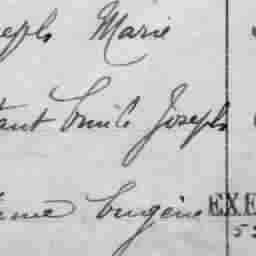 eph Marie
tant Emile Joseph
Eugène EXE